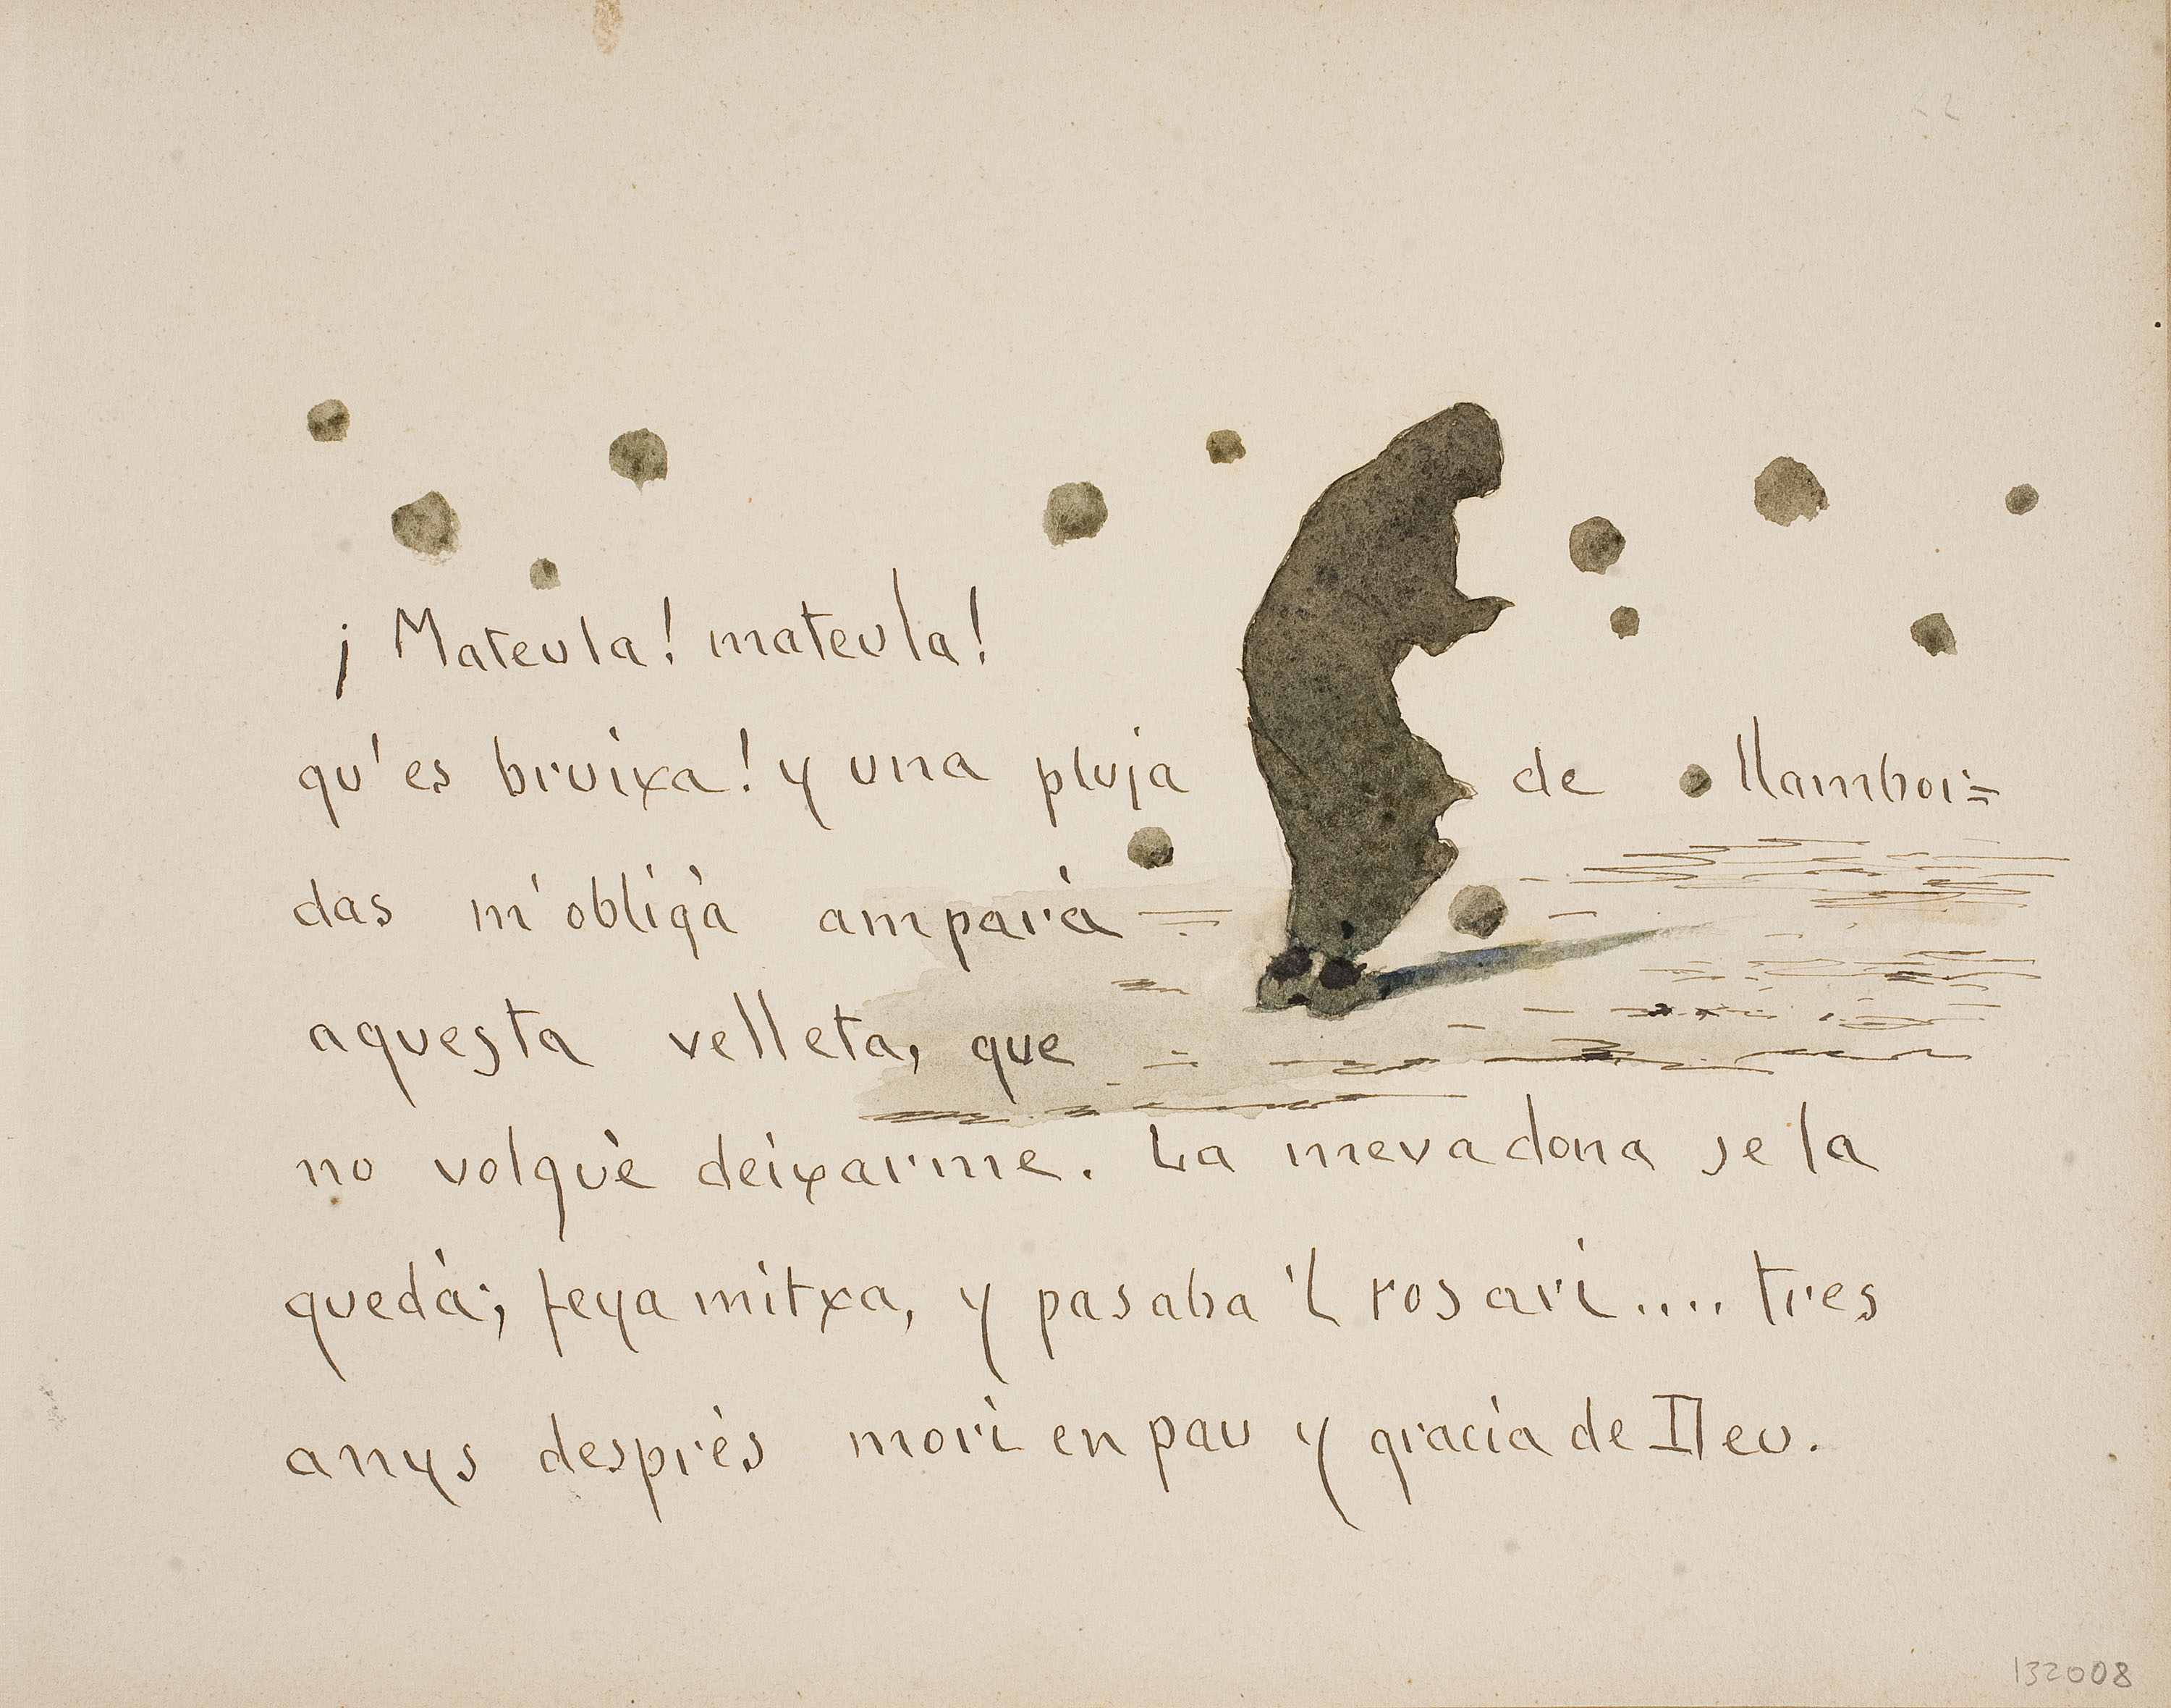 22
¡ Mateula! mateula!
qu'es bruixa! y una pluja de llambor=
das m'obligà amparà =
aquesta velleta, que
no volguè deixarme. La meva dona se la
quedà; feya mitxa, y pasaba 'l rosari.... tres
anys desprès morì en pau y gracia de Deu.
132008